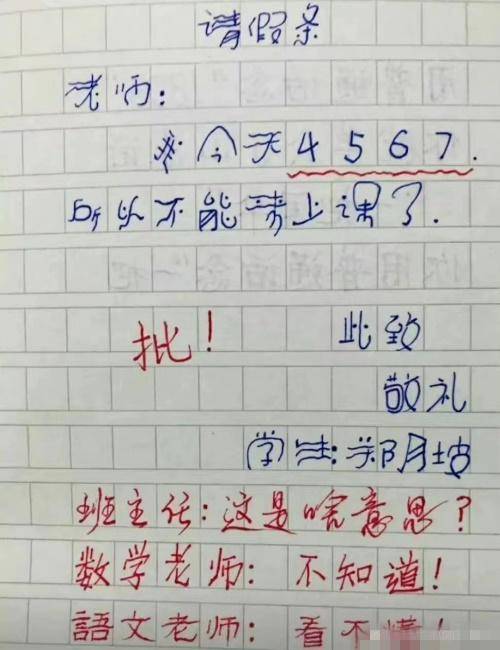 请假条
老师:
我今天4567.
所以不能来上课了.
批!
此致
敬礼
学生:郑月坡
班主任:这是啥意思?
数学老师: 不知道!
語文老师: 看不懂!